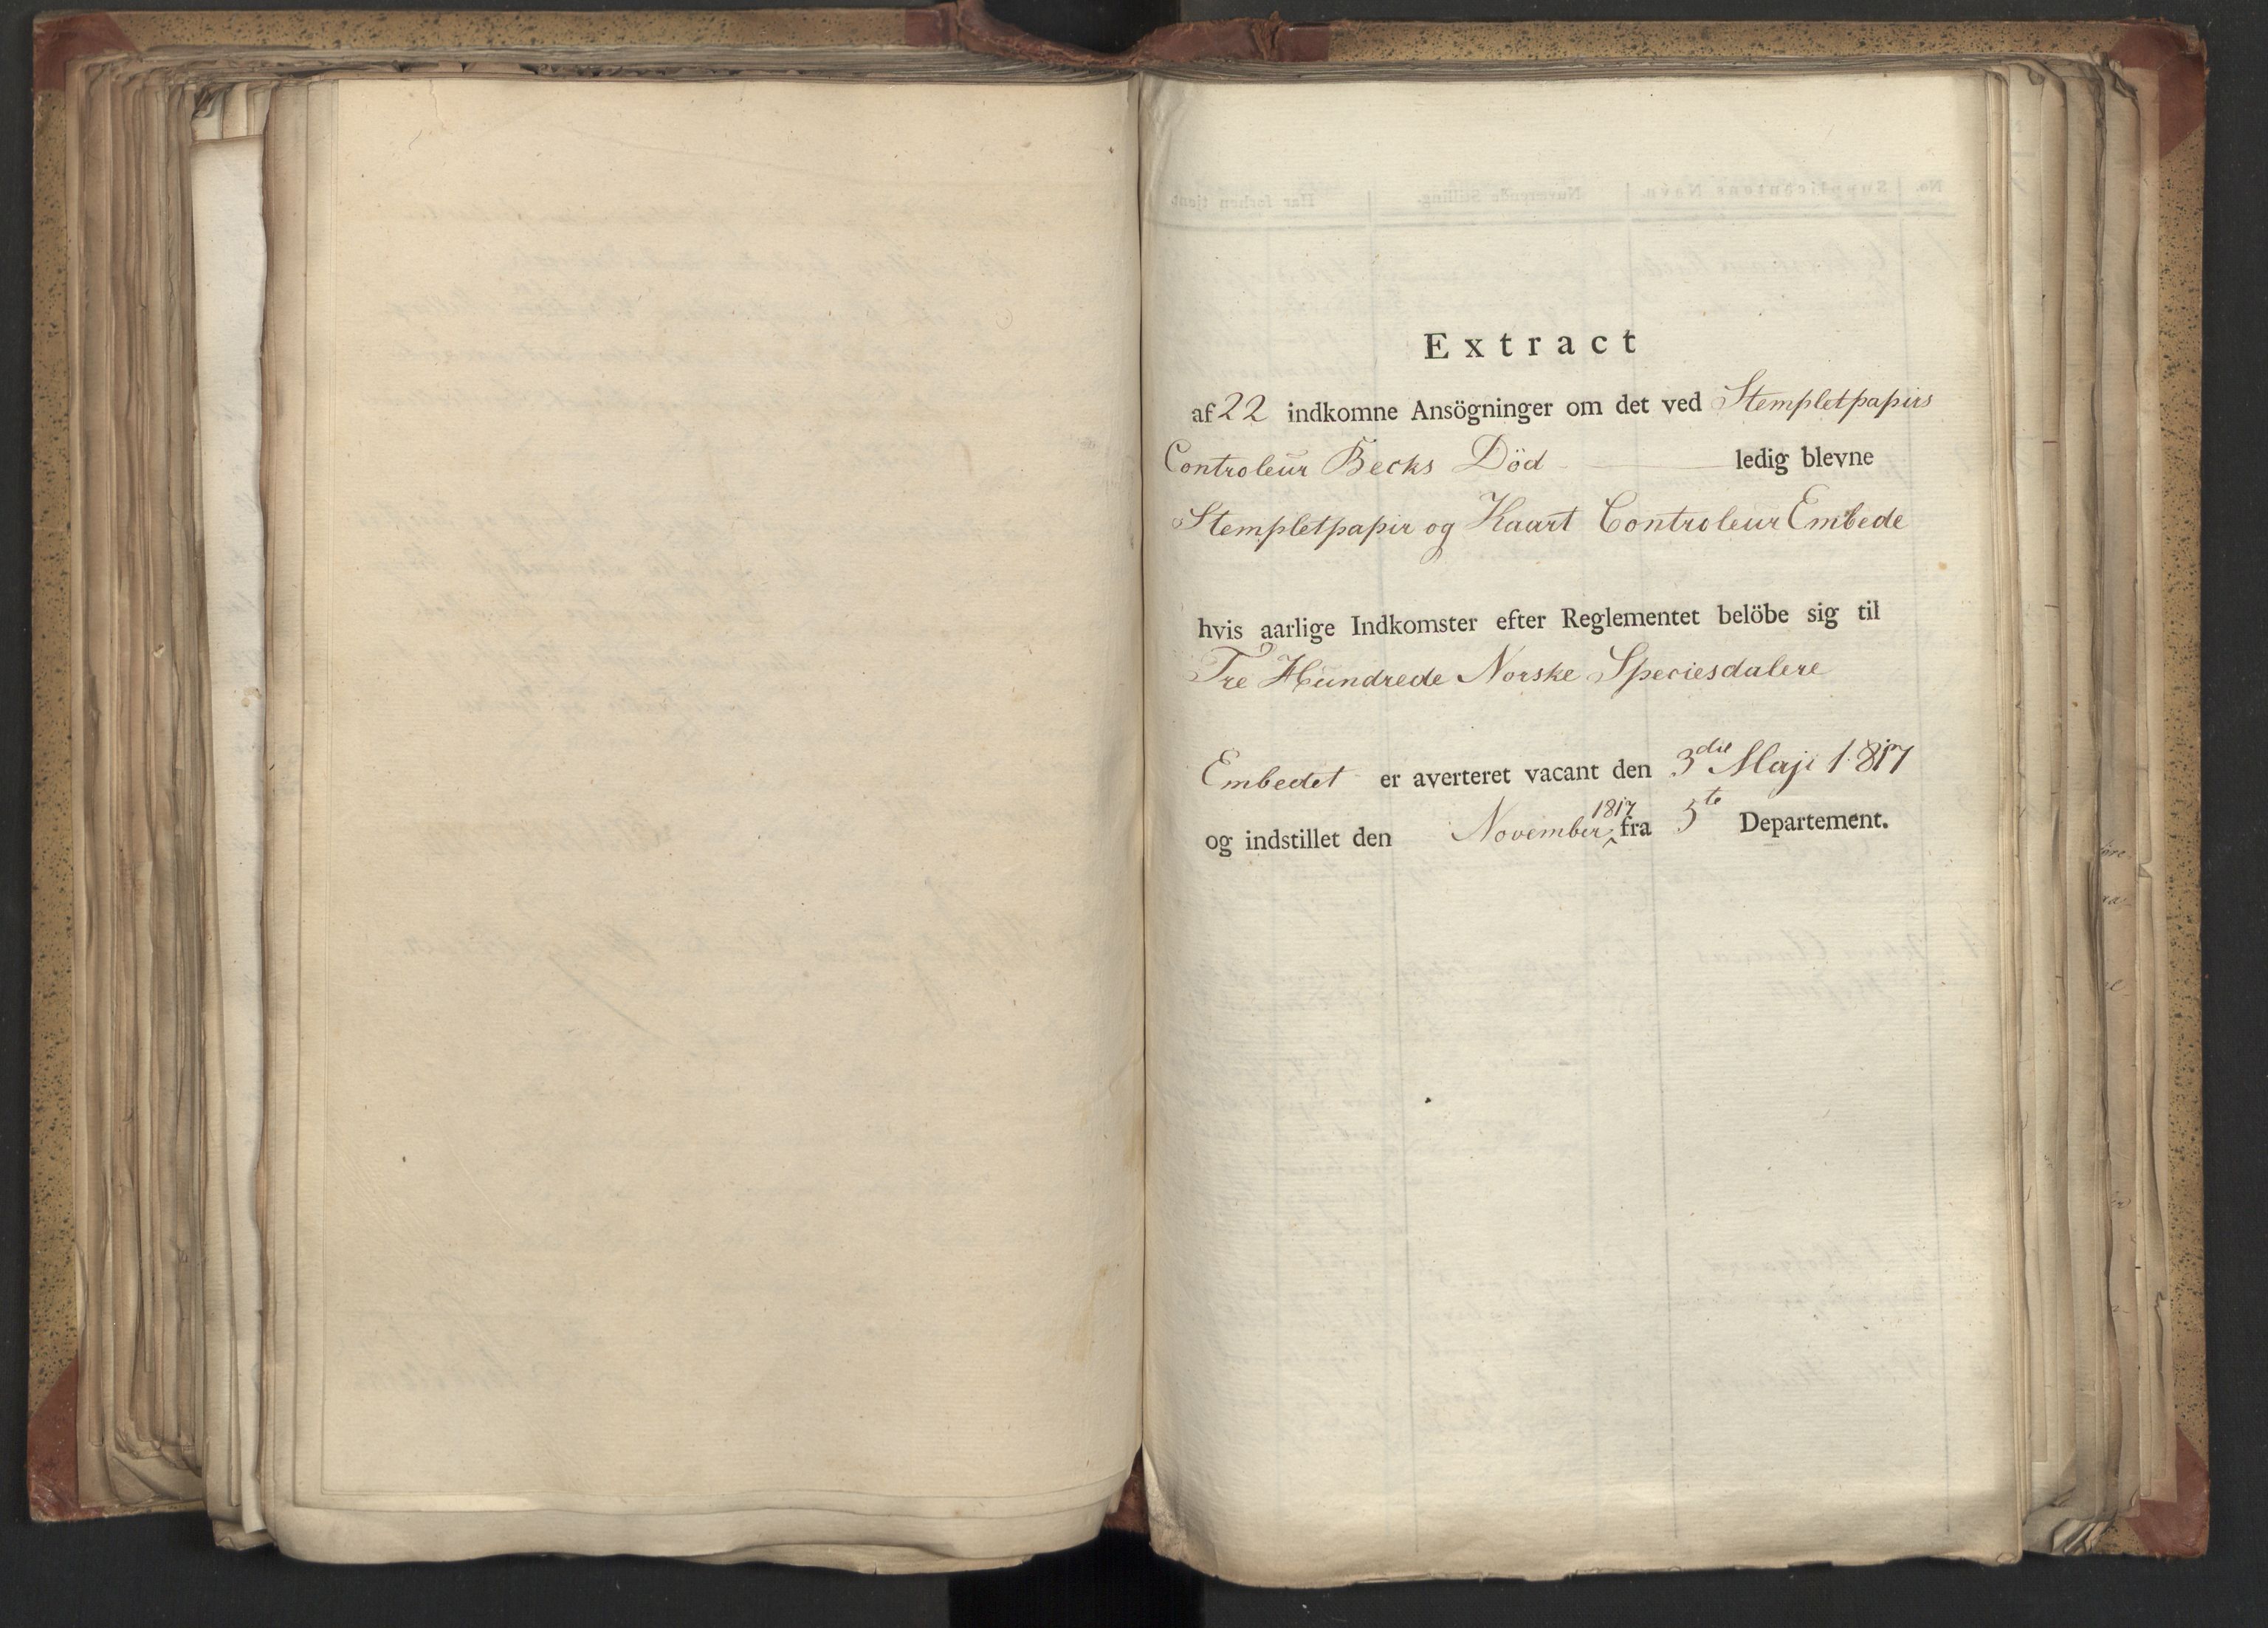 Extract
af 22 indkomne Ansögninger om det ved Stempletpapirs
Controleur Becks Död ledig blevne
Stempletpapir og Kaart Controleur Embede
hvis aarlige Indkomster efter Reglementet belöbe sig til
Tre Hundrede Norske Speciesdalere
Embedet er averteret vacant den 3die Maji 1817
og indstillet den November 1817 fra 5te Departement.